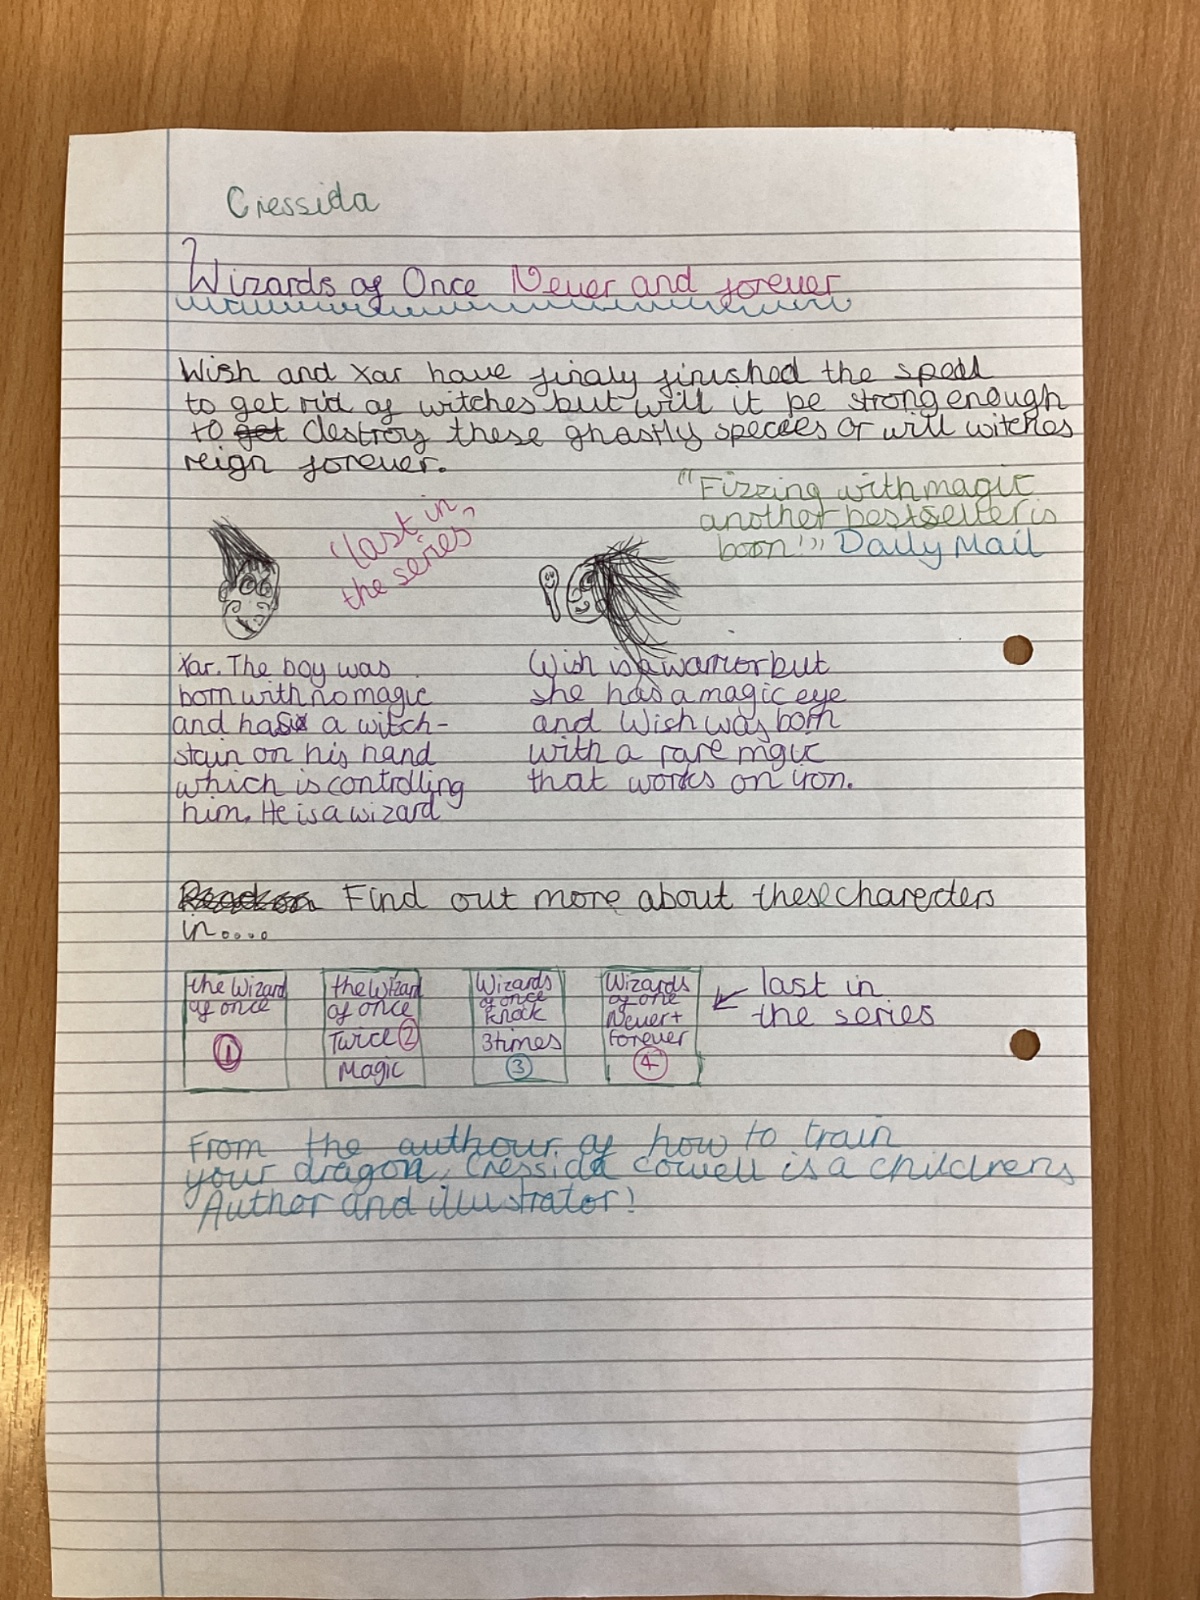 Cressida
Wizards of Once Never and forever
Wish and Xar have finaly finished the spell
to get rid of witches but will it be strong enough
to get destroy these ghastly species or will witches
reign forever.
"Fizzing with magic
another bestseller is
born!" Daily Mail
"last in,
the series
Xar. The boy was
born with no magic
and has a witch-
stain on his hand
which is controlling
him. He is a wizard
Wish is a warrior but
she has a magic eye
and Wish was born
with a rare mgic
that works on iron.
Read on Find out more about these charecters
in....
the Wizard
of once
1
the Wizard
of once
Twice 2
Magic
Wizards
of once
knock
3times
3
Wizards
of one
Never+
Forever
4
last in
the series
From the authour of how to train
your dragon. Cressida Cowell is a childrens
Author and illustrator!